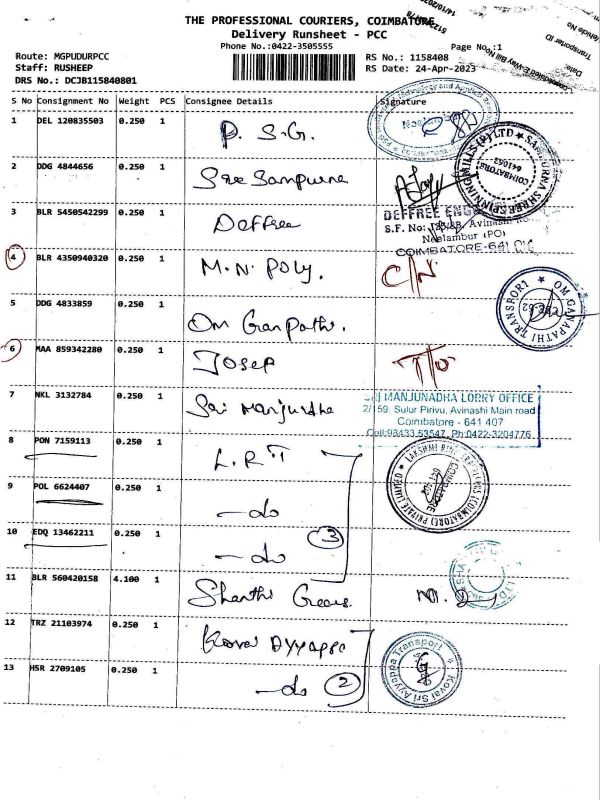 THE PROFESSIONAL COURIERS, COIMBATORE
Delivery Runsheet - PCC
Phone No.:0422-3505555
Page No.:1
Route: MGPUDURPCC
Staff: RUSHEEP
DRS No.: DCJB115840801
RS No.: 1158408
RS Date: 24-Apr-2023
S No Consignment No Weight PCS Consignee Details Signature
1 DEL 120835503 0.250 1 P. S.G.
2 DDG 4844656 0.250 1 Sree Sampurna
SAMPURNA SHREE SPINNING MILLS (P) LTD
COIMBATORE
641062
3 BLR 5450542299 0.250 1 Deffree
DEFFREE
Avinashi
Neelambur (PO)
COIMBATORE-641
4 BLR 4350940320 0.250 1 M.N. POLY. C/N
5 DDG 4833859 0.250 1 Om Ganpathi.
OM GANAPATHI TRANSPORT
6 MAA 859342280 0.250 1 Josep T/O
7 NKL 3132784 0.250 1 Sri Manjundha
SRI MANJUNADHA LORRY OFFICE
2/159, Sulur Pirivu, Avinashi Main road
Coimbatore - 641 407
Cell:98433 53547, Ph:0422-3204776
8 PON 7159113 0.250 1 L.R.T
9 POL 6624407 0.250 1 -do
10 EDQ 13462211 0.250 1 -do 3
11 BLR 560420158 4.100 1 Shanthi Gears
12 TRZ 21103974 0.250 1 Kovai Ayyappa
Kovai Sri Ayyappa Transport
13 HSR 2709105 0.250 1 -do 2